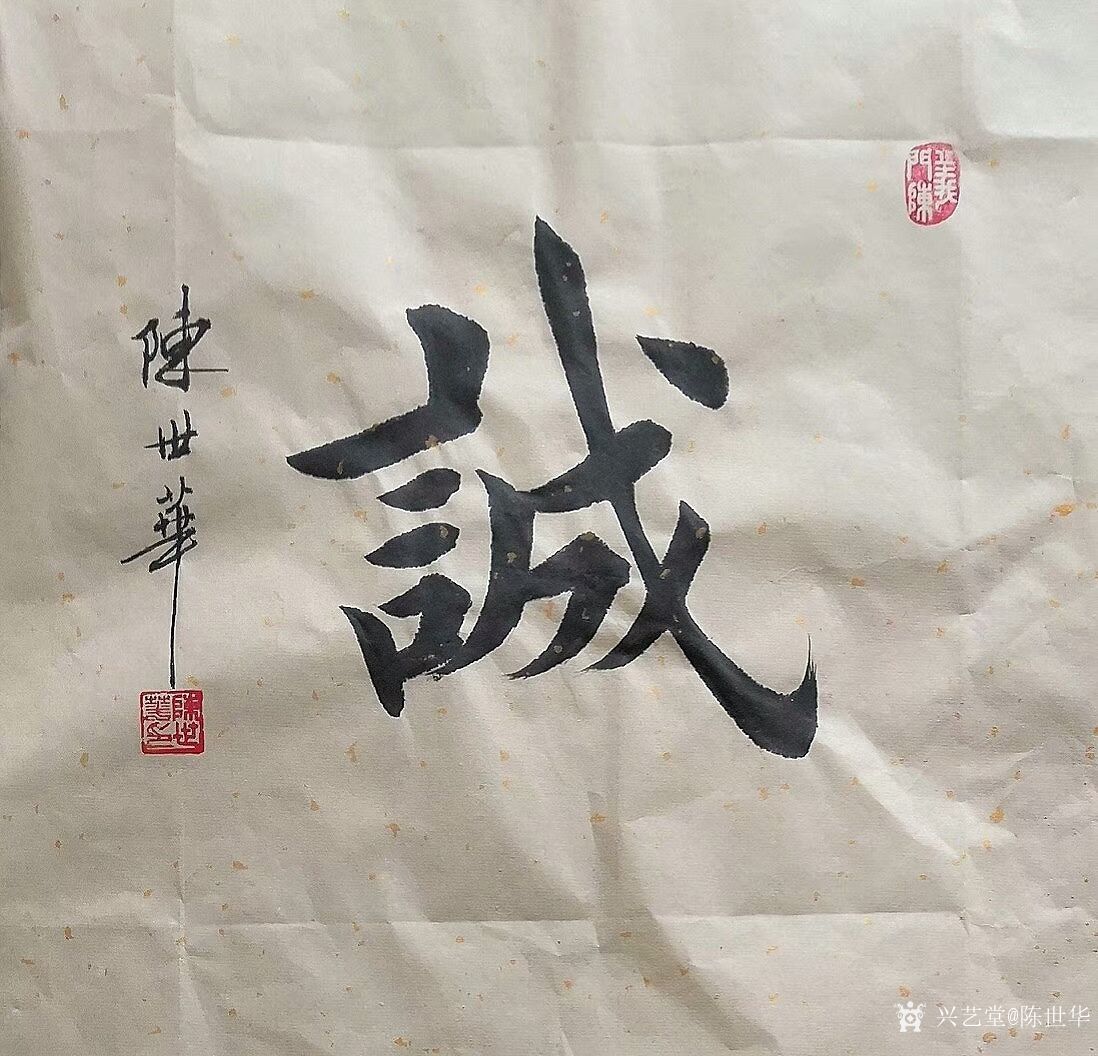 義門陳
誠
陳世華
陳世華印
兴艺堂@陈世华